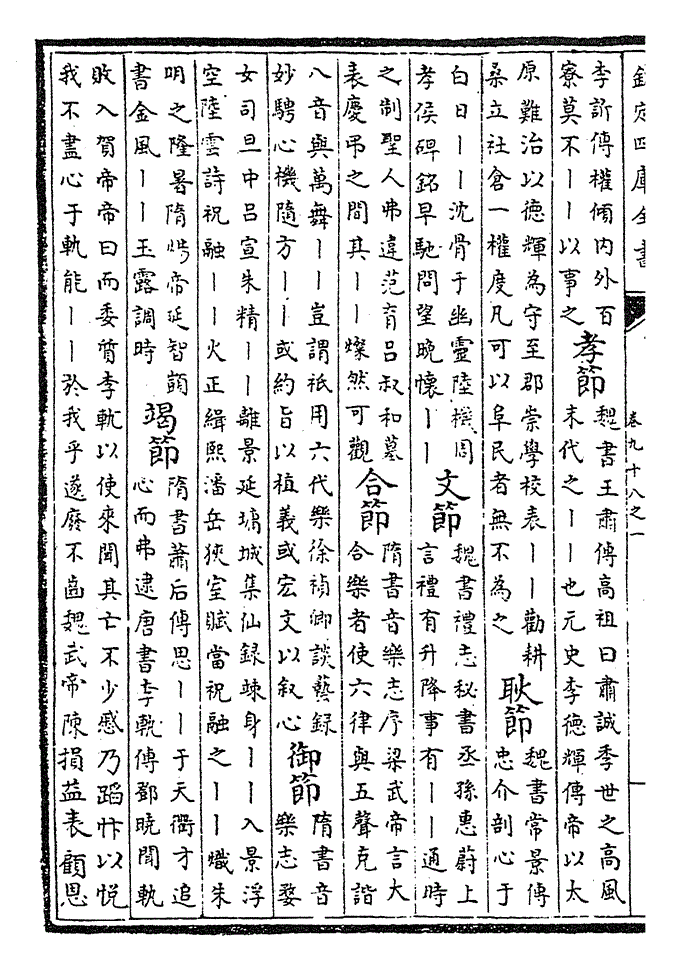 欽定四庫全書
卷九十八之一
李訢傳權傾內外百
寮莫不丨丨以事之
孝節
魏書王肅傳高祖曰肅誠季世之高風
末代之丨丨也元史李德輝傳帝以太
原難治以德輝為守至郡崇學校表丨丨勸耕
桑立社倉一權度凡可以阜民者無不為之
耿節
魏書常景傳
忠介剖心于
白日丨丨沈骨于幽靈陸機周
孝侯碑銘早馳問望晚懷丨丨
文節
魏書禮志秘書丞孫惠蔚上
言禮有升降事有丨丨通時
之制聖人弗違范育呂叔和墓
表慶弔之間其丨丨燦然可觀
合節
隋書音樂志序梁武帝言大
合樂者使六律與五聲克諧
八音與萬舞丨丨豈謂祇用六代樂徐禎卿談藝録
妙騁心機隨方丨丨或約旨以植義或宏文以叙心
御節
隋書音
樂志婺
女司旦中呂宣朱精丨丨離景延墉城集仙録竦身丨丨入景浮
空陸雲詩祝融丨丨火正緝熙潘岳狹室賦當祝融之丨丨熾朱
明之隆暑隋煬帝延智顗
書金風丨丨玉露調時
竭節
隋書蕭后傳思丨丨于天衢才追
心而弗逮唐書李軌傳鄧曉聞軌
敗入賀帝帝曰而委質李軌以使來聞其亡不少慼乃蹈忭以悅
我不盡心于軌能丨丨於我乎遂廢不齒魏武帝陳損益表顧恩